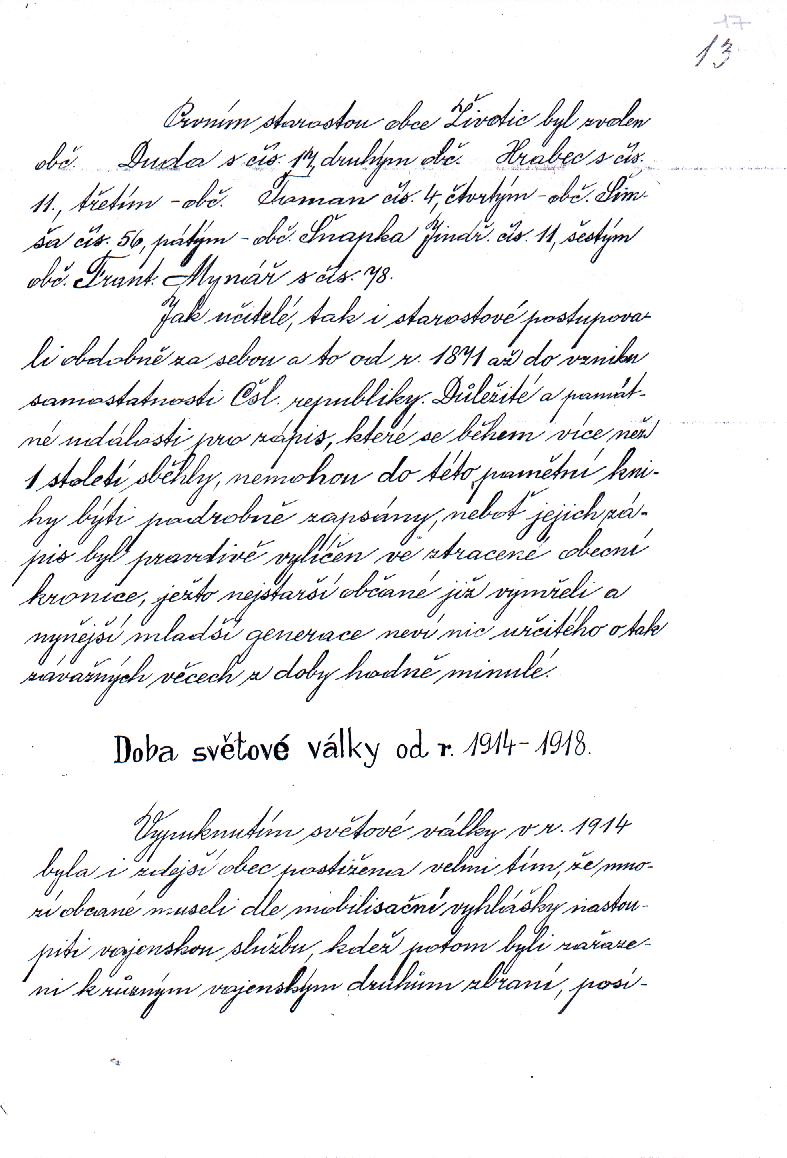 17
13
Prvním starostou obce Životic byl zvolen
obč. Duda s čís. 17, druhým obč. Hrabec s čís.
11., třetím - obč. Toman čís. 4, čtvrtým - obč. Šim-
ša čís. 56, pátým - obč. Šnapka Jindř. čís. 11, šestým
obč. Frant. Mynář s čís. 78.
Jak učitelé, tak i starostové postupova-
li obdobně za sebou a to od r. 1871 až do vzniku
samostatnosti Čsl. republiky. Důležité a památ-
né události pro zápis, které se během více než
1 století sběhly, nemohou do této pamětní kni-
hy býti podrobně zapsány, neboť jejich zá-
pis byl pravdivě vylíčen ve ztracené obecní
kronice, ježto nejstarší občané již vymřeli a
nynější mladší generace neví nic určitého o tak
závažných věcech z doby hodně minulé.
Doba světové války od r. 1914-1918.
Vypuknutím světové války v r. 1914
byla i zdejší obec postižena velmi tím, že mno-
zí občané museli dle mobilisační vyhlášky nastou-
piti vojenskou službu, kdež potom byli zařaze-
ni k různým vojenským druhům zbraní, posí-